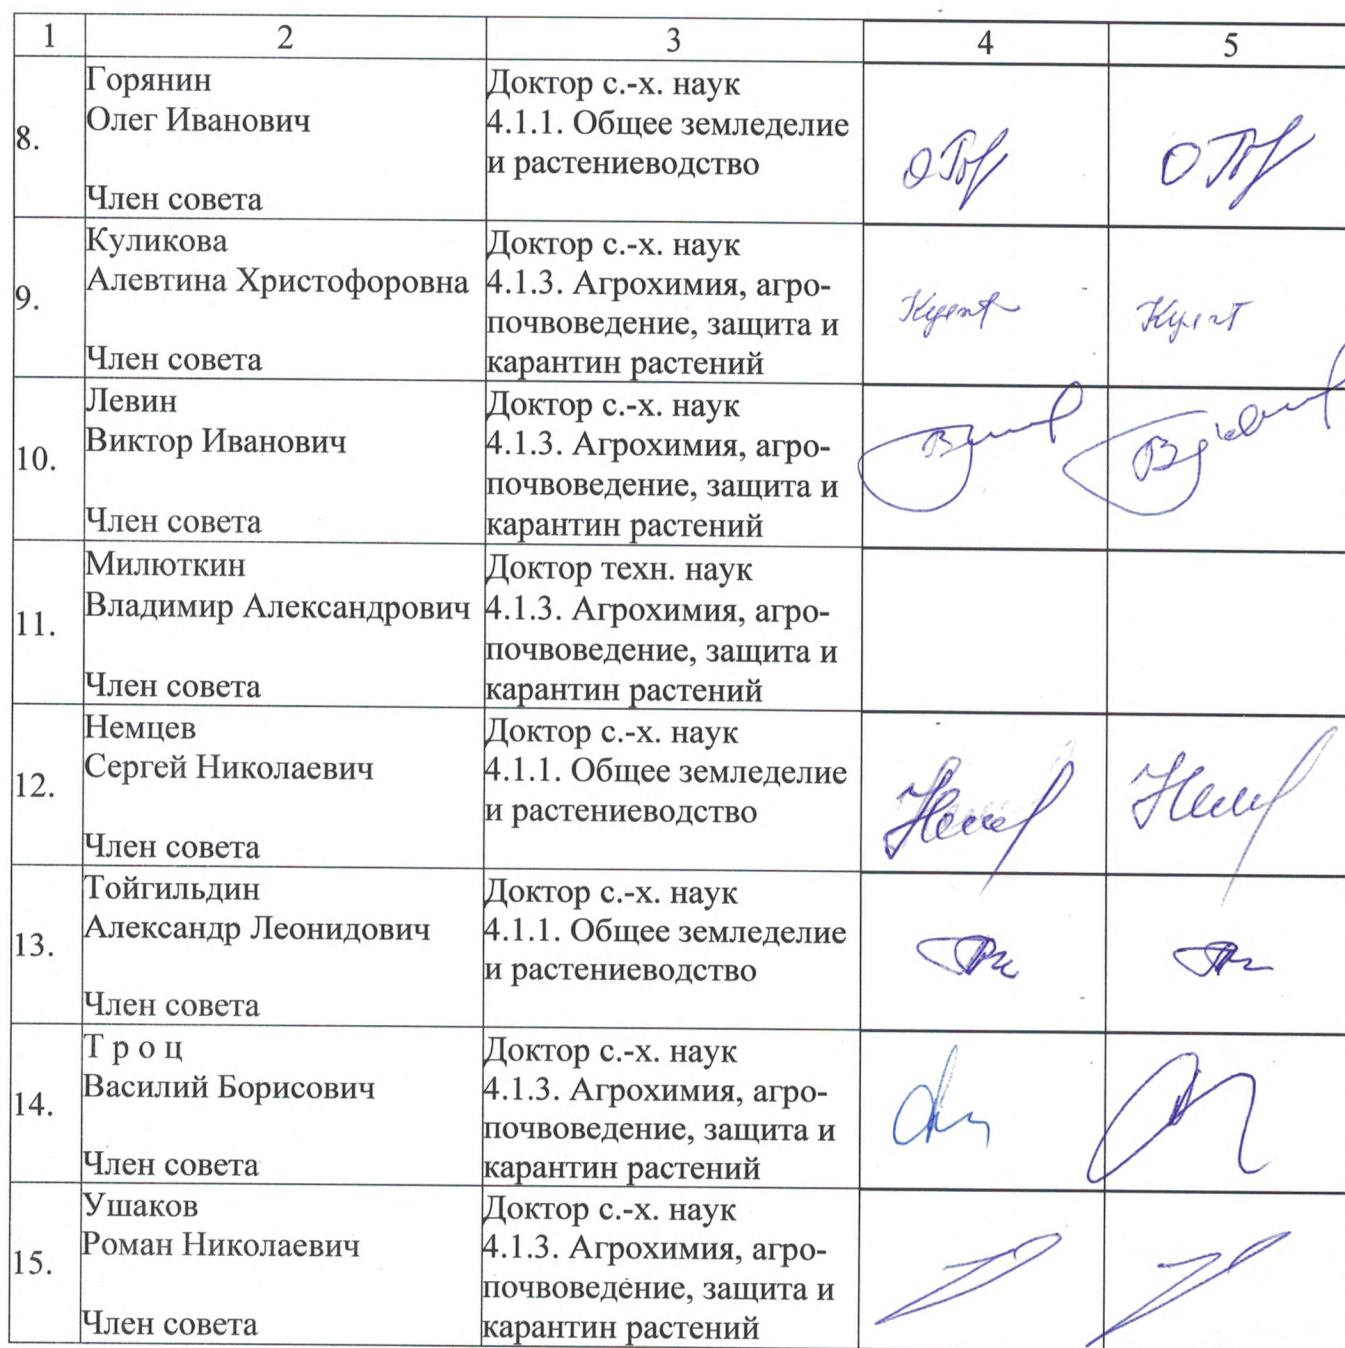 1 2 3 4 5
8.
Горянин
Олег Иванович
Член совета
Доктор с.-х. наук
4.1.1. Общее земледелие
и растениеводство
9.
Куликова
Алевтина Христофоровна
Член совета
Доктор с.-х. наук
4.1.3. Агрохимия, агро-
почвоведение, защита и
карантин растений
10.
Левин
Виктор Иванович
Член совета
Доктор с.-х. наук
4.1.3. Агрохимия, агро-
почвоведение, защита и
карантин растений
11.
Милюткин
Владимир Александрович
Член совета
Доктор техн. наук
4.1.3. Агрохимия, агро-
почвоведение, защита и
карантин растений
12.
Немцев
Сергей Николаевич
Член совета
Доктор с.-х. наук
4.1.1. Общее земледелие
и растениеводство
13.
Тойгильдин
Александр Леонидович
Член совета
Доктор с.-х. наук
4.1.1. Общее земледелие
и растениеводство
14.
Т р о ц
Василий Борисович
Член совета
Доктор с.-х. наук
4.1.3. Агрохимия, агро-
почвоведение, защита и
карантин растений
15.
Ушаков
Роман Николаевич
Член совета
Доктор с.-х. наук
4.1.3. Агрохимия, агро-
почвоведение, защита и
карантин растений